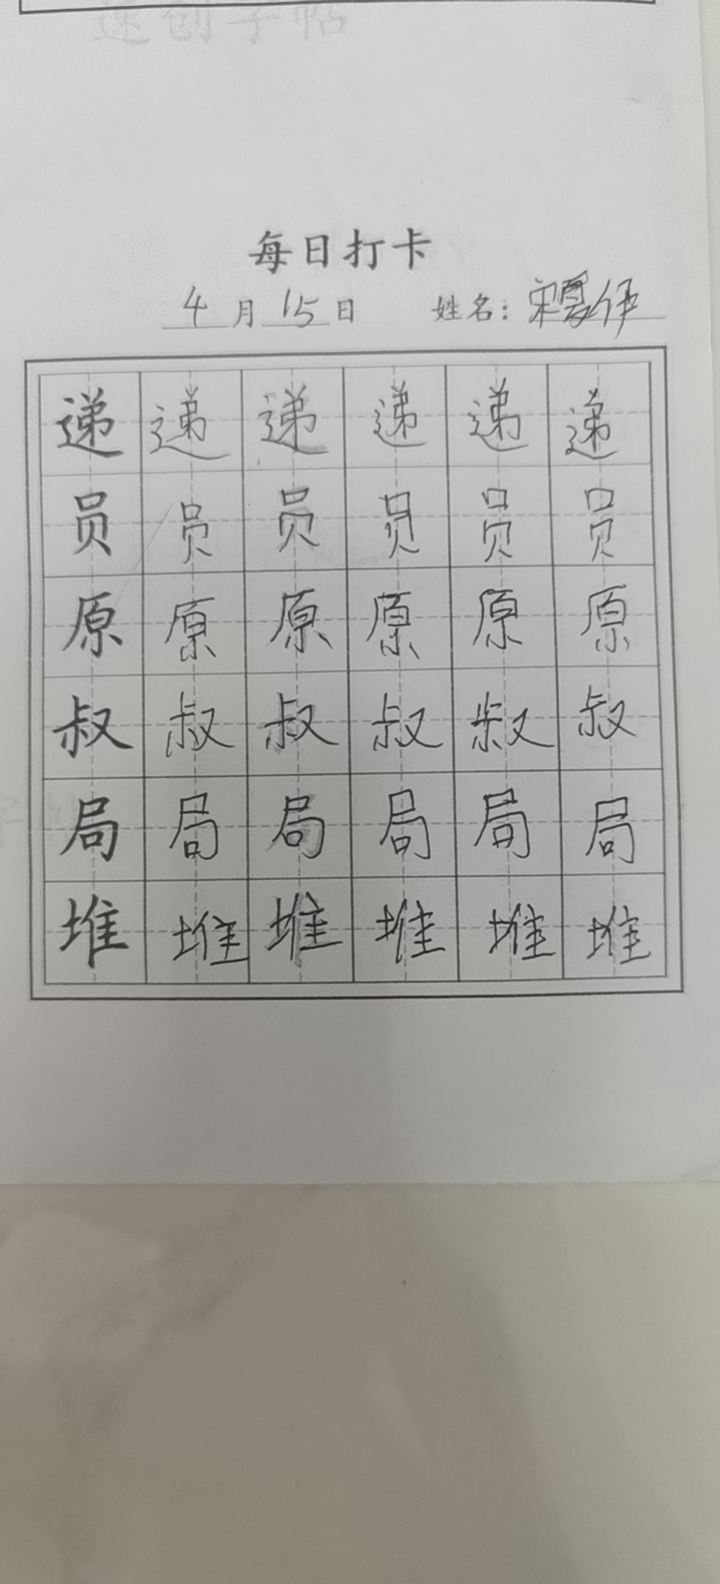 每日打卡
4月15日 姓名：宋夏伊
递递递递递递
员员员员员员
原原原原原原
叔叔叔叔叔叔
局局局局局局
堆堆堆堆堆堆